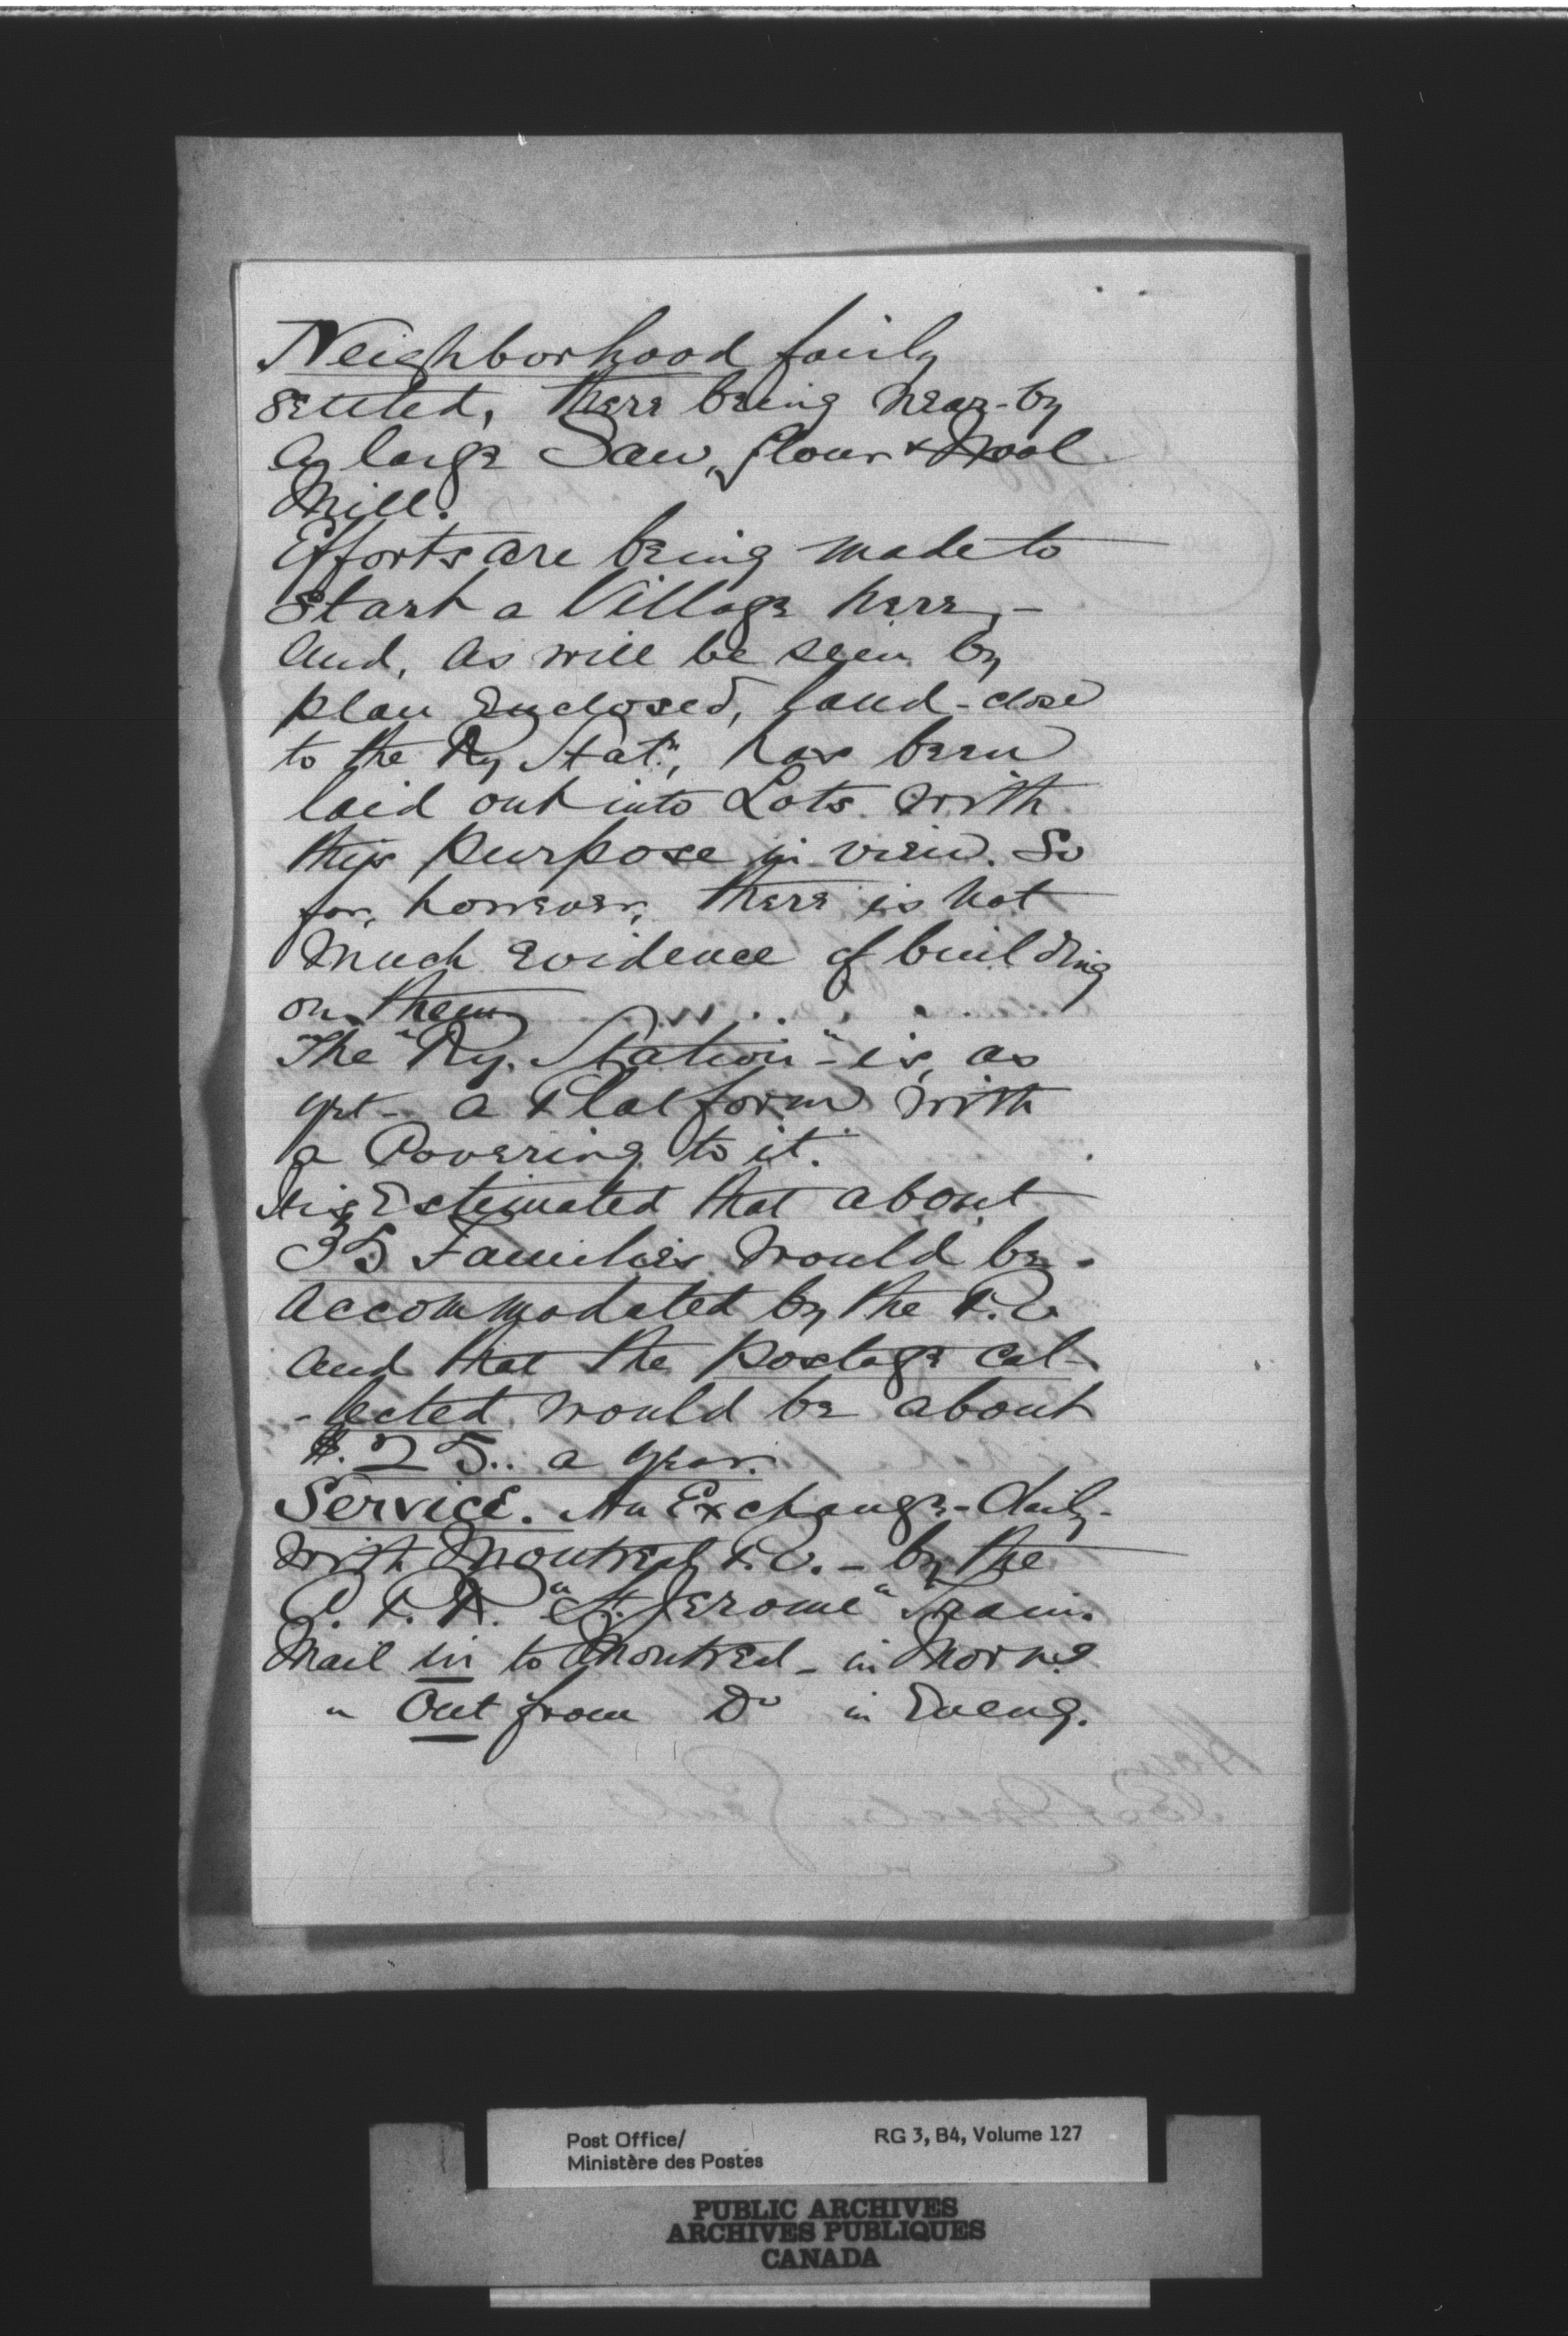 Neighborhood fairly
settled, there being near-by
a large Saw, flour & Wool
Mill.
Efforts are being made to
start a Village here, -
and, as will be seen by
plan Enclosed, land - close
to the Ry Statn, has been
laid out into Lots with
this purpose in view. So
far, however, there is not
much evidence of building
on them
The "Ry. Station" - is, as
yet - a Platform with
a Covering to it.
It is Estimated that about
35 Families would be
accommodated by the P.O
and that the postage col-
-lected would be about
$.25.. a year.
Service. An Exchange - daily -
with Montreal P.O. - by the
C. P. R. "St. Jerome" Train.
Mail in to Montreal - in Morng
" Out from Do in Eveng.
Post Office/
Ministère des Postes
RG 3, B4, Volume 127
PUBLIC ARCHIVES
ARCHIVES PUBLIQUES
CANADA